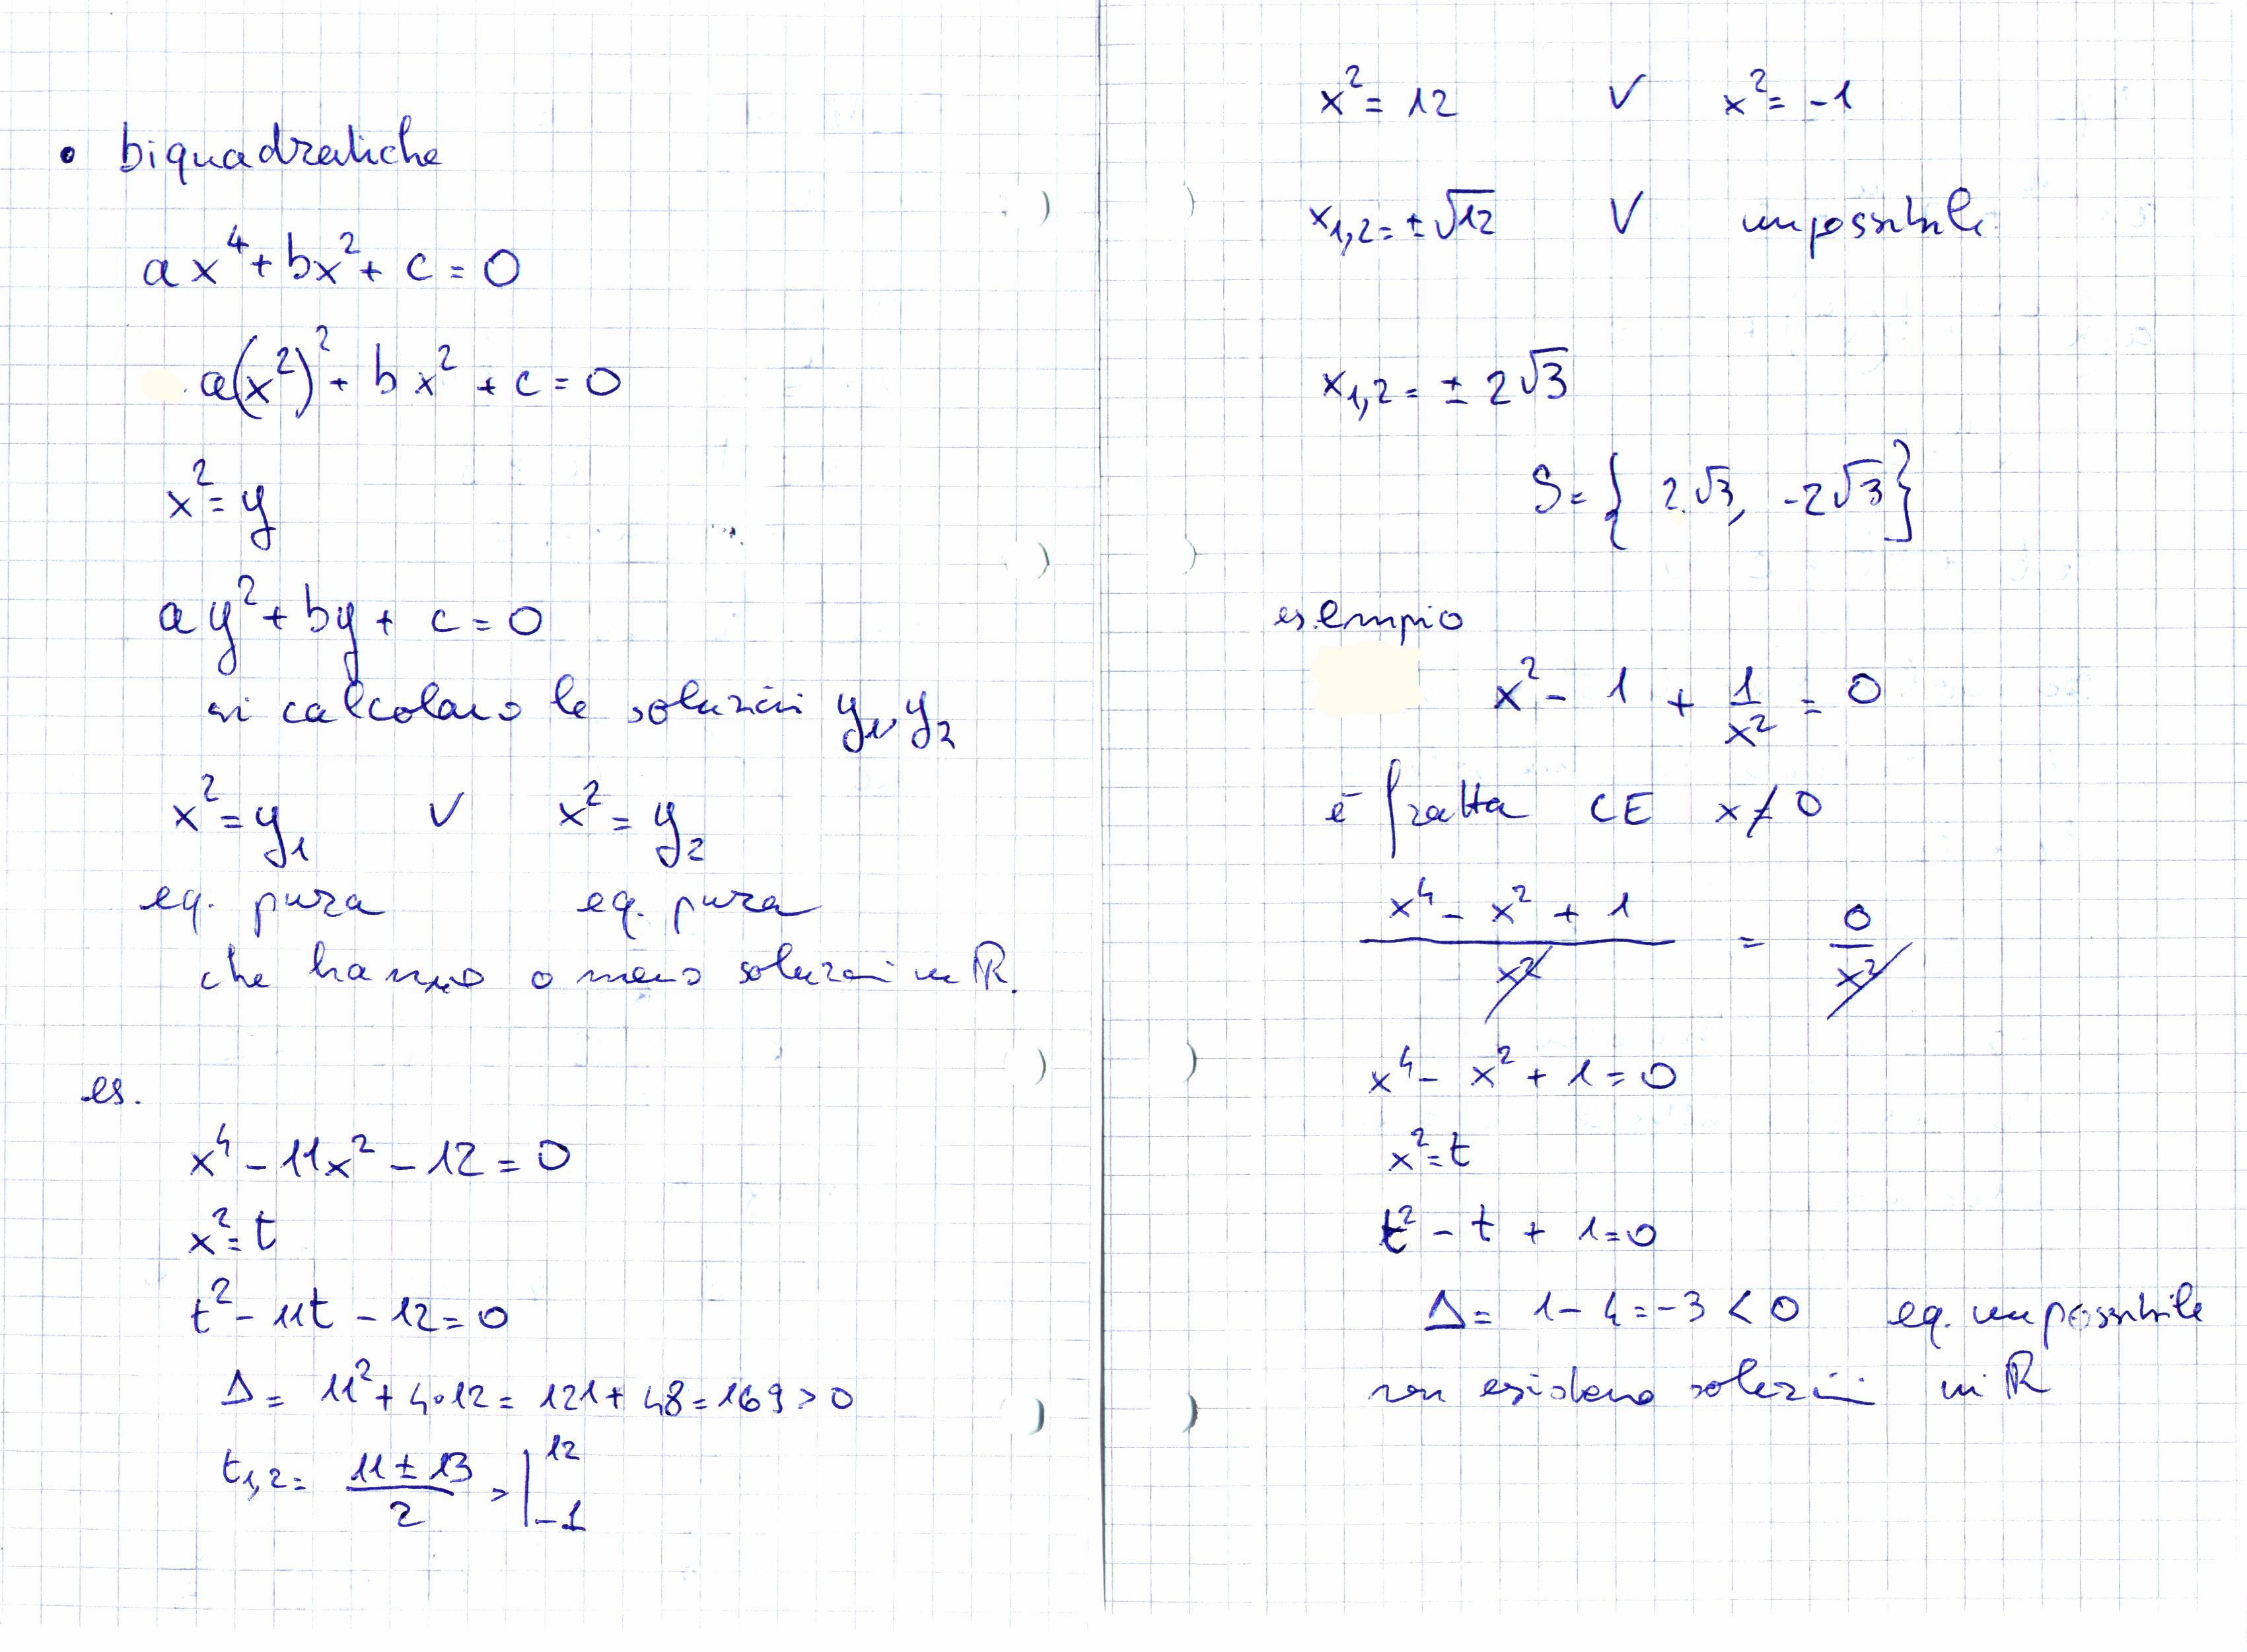 • biquadratiche
ax⁴ + bx² + c = 0
a(x²)² + bx² + c = 0
x² = y
ay² + by + c = 0
si calcolano le soluzioni y₁, y₂
x² = y₁ ∨ x² = y₂
eq. pura eq. pura
che hanno o meno soluzioni in ℝ.
es.
x⁴ - 11x² - 12 = 0
x² = t
t² - 11t - 12 = 0
Δ = 11² + 4·12 = 121 + 48 = 169 > 0
t₁,₂ = (11 ± 13)/2 = | 12 -1
x² = 12 ∨ x² = -1
x₁,₂ = ±√12 ∨ impossibile
x₁,₂ = ± 2√3
S = { 2√3, -2√3 }
esempio
x² - 1 + 1/x² = 0
è fratta CE x ≠ 0
(x⁴ - x² + 1)/x² = 0/x²
x⁴ - x² + 1 = 0
x² = t
t² - t + 1 = 0
Δ = 1 - 4 = -3 < 0 eq. impossibile
non esistono soluzioni in ℝ